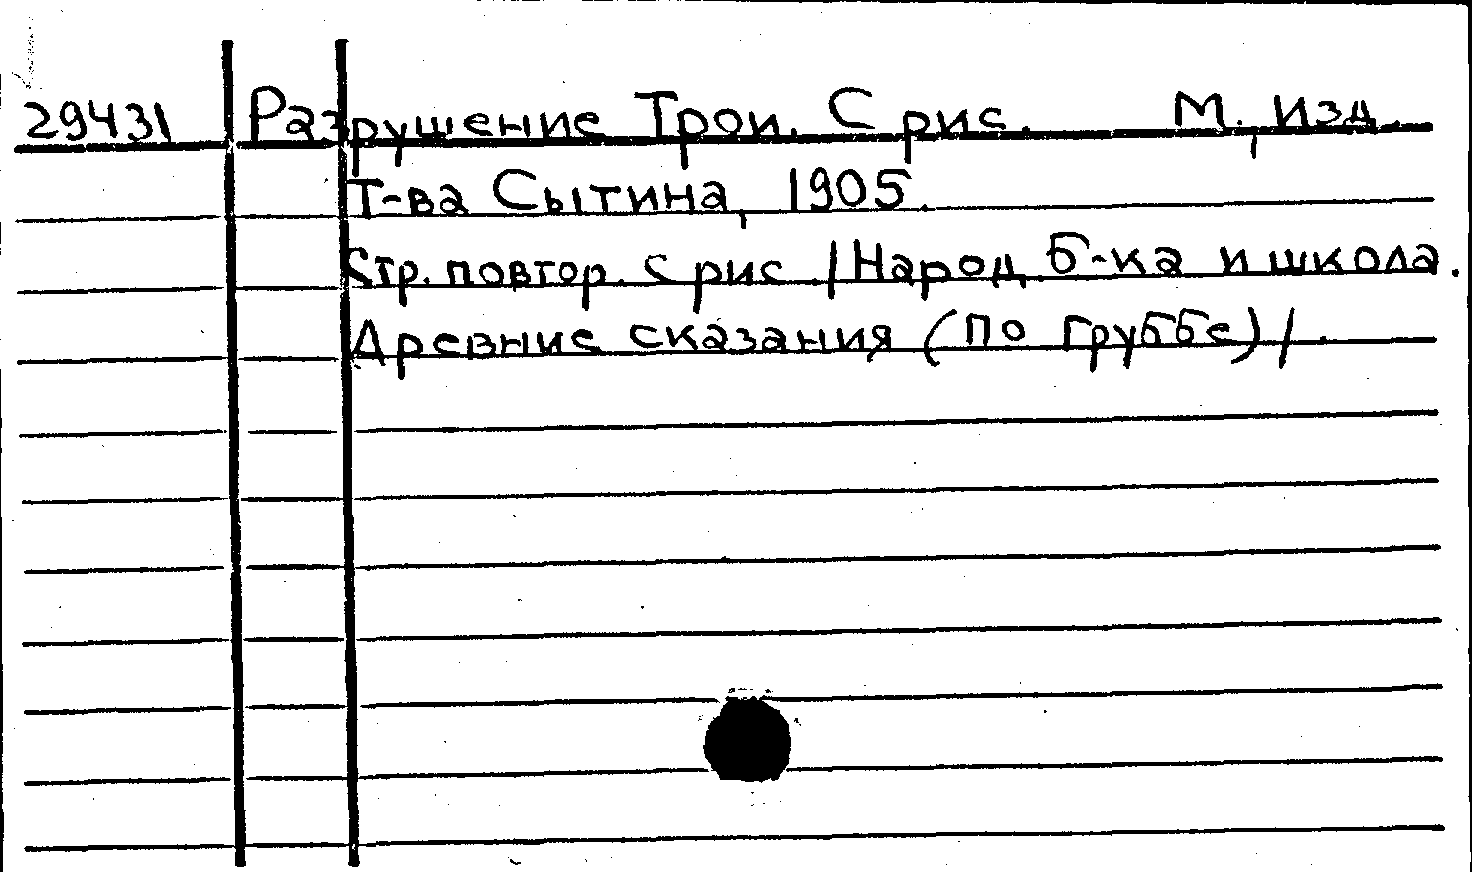 29431 Разрушение Трои. С рис. М., изд.
Т-ва Сытина, 1905.
Стр. повтор. с рис. /Народ. б-ка и школа.
Древние сказания (по Груббе)/.